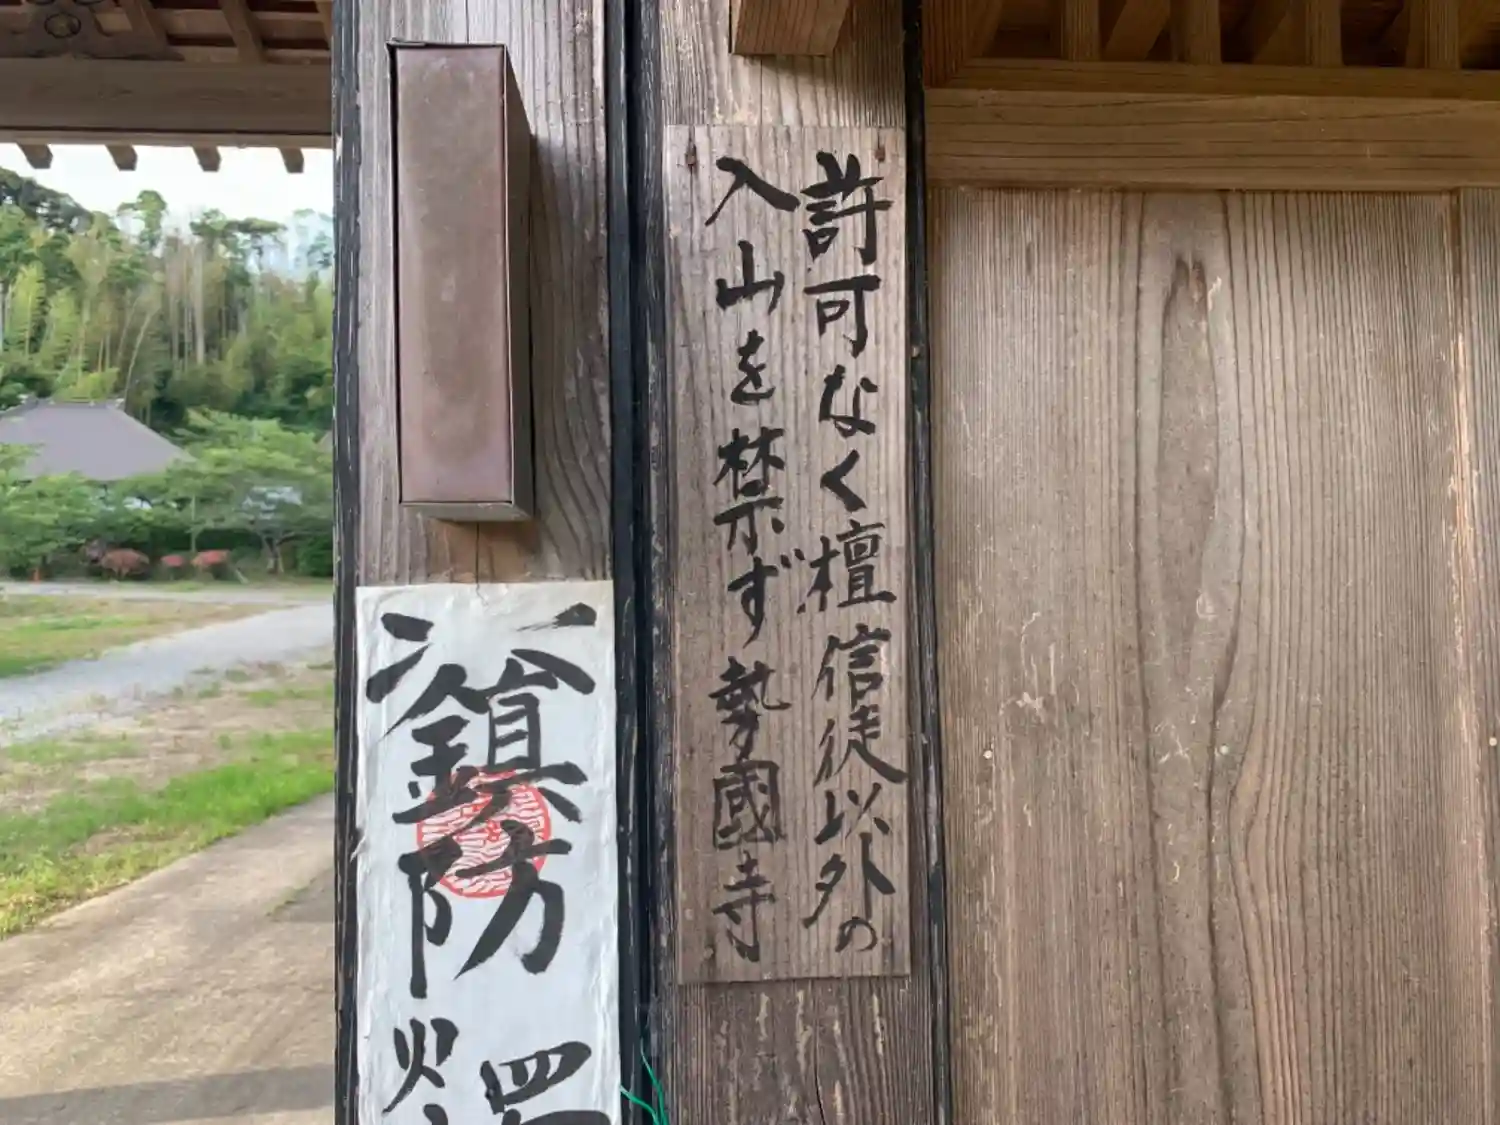 許可なく檀信徒以外の
入山を禁ず勢國寺
鎮防
火